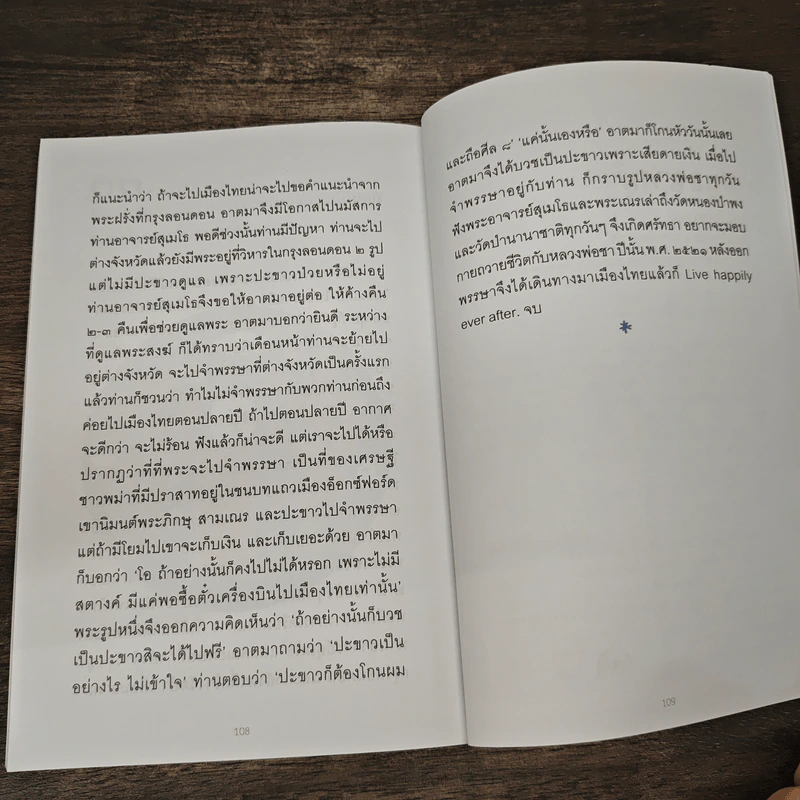 ก็แนะนำว่า ถ้าจะไปเมืองไทยน่าจะไปขอคำแนะนำจาก
พระฝรั่งที่กรุงลอนดอน อาตมาจึงมีโอกาสไปนมัสการ
ท่านอาจารย์สุเมโธ พอดีช่วงนั้นท่านมีปัญหา ท่านจะไป
ต่างจังหวัดแล้วยังมีพระอยู่ที่วิหารในกรุงลอนดอน ๒ รูป
แต่ไม่มีปะขาวดูแล เพราะปะขาวป่วยหรือไม่อยู่
ท่านอาจารย์สุเมโธจึงขอให้อาตมาอยู่ต่อ ให้ค้างคืน
๒-๓ คืนเพื่อช่วยดูแลพระ อาตมาบอกว่ายินดี ระหว่าง
ที่ดูแลพระสงฆ์ ก็ได้ทราบว่าเดือนหน้าท่านจะย้ายไป
อยู่ต่างจังหวัด จะไปจำพรรษาที่ต่างจังหวัดเป็นครั้งแรก
แล้วท่านก็ชวนว่า ทำไมไม่จำพรรษากับพวกท่านก่อนถึง
ค่อยไปเมืองไทยตอนปลายปี ถ้าไปตอนปลายปี อากาศ
จะดีกว่า จะไม่ร้อน ฟังแล้วก็น่าจะดี แต่เราจะไปได้หรือ
ปรากฏว่าที่ที่พระจะไปจำพรรษา เป็นที่ของเศรษฐี
ชาวพม่าที่มีปราสาทอยู่ในชนบทแถวเมืองอ็อกซ์ฟอร์ด
เขานิมนต์พระภิกษุ สามเณร และปะขาวไปจำพรรษา
แต่ถ้ามีโยมไปเขาจะเก็บเงิน และเก็บเยอะด้วย อาตมา
ก็บอกว่า 'โอ ถ้าอย่างนั้นก็คงไปไม่ได้หรอก เพราะไม่มี
สตางค์ มีแค่พอซื้อตั๋วเครื่องบินไปเมืองไทยเท่านั้น'
พระรูปหนึ่งจึงออกความคิดเห็นว่า 'ถ้าอย่างนั้นก็บวช
เป็นปะขาวสิจะได้ไปฟรี' อาตมาถามว่า 'ปะขาวเป็น
อย่างไร ไม่เข้าใจ' ท่านตอบว่า 'ปะขาวก็ต้องโกนผม
108
และถือศีล ๘' 'แค่นั้นเองหรือ' อาตมาก็โกนหัววันนั้นเลย
อาตมาจึงได้บวชเป็นปะขาวเพราะเสียดายเงิน เมื่อไป
จำพรรษาอยู่กับท่าน ก็กราบรูปหลวงพ่อชาทุกวัน
ฟังพระอาจารย์สุเมโธและพระเณรเล่าถึงวัดหนองป่าพง
และวัดป่านานาชาติทุกวันๆ จึงเกิดศรัทธา อยากจะมอบ
กายถวายชีวิตกับหลวงพ่อชา ปีนั้น พ.ศ. ๒๕๒๑ หลังออก
พรรษาจึงได้เดินทางมาเมืองไทยแล้วก็ Live happily
ever after. จบ
*
109